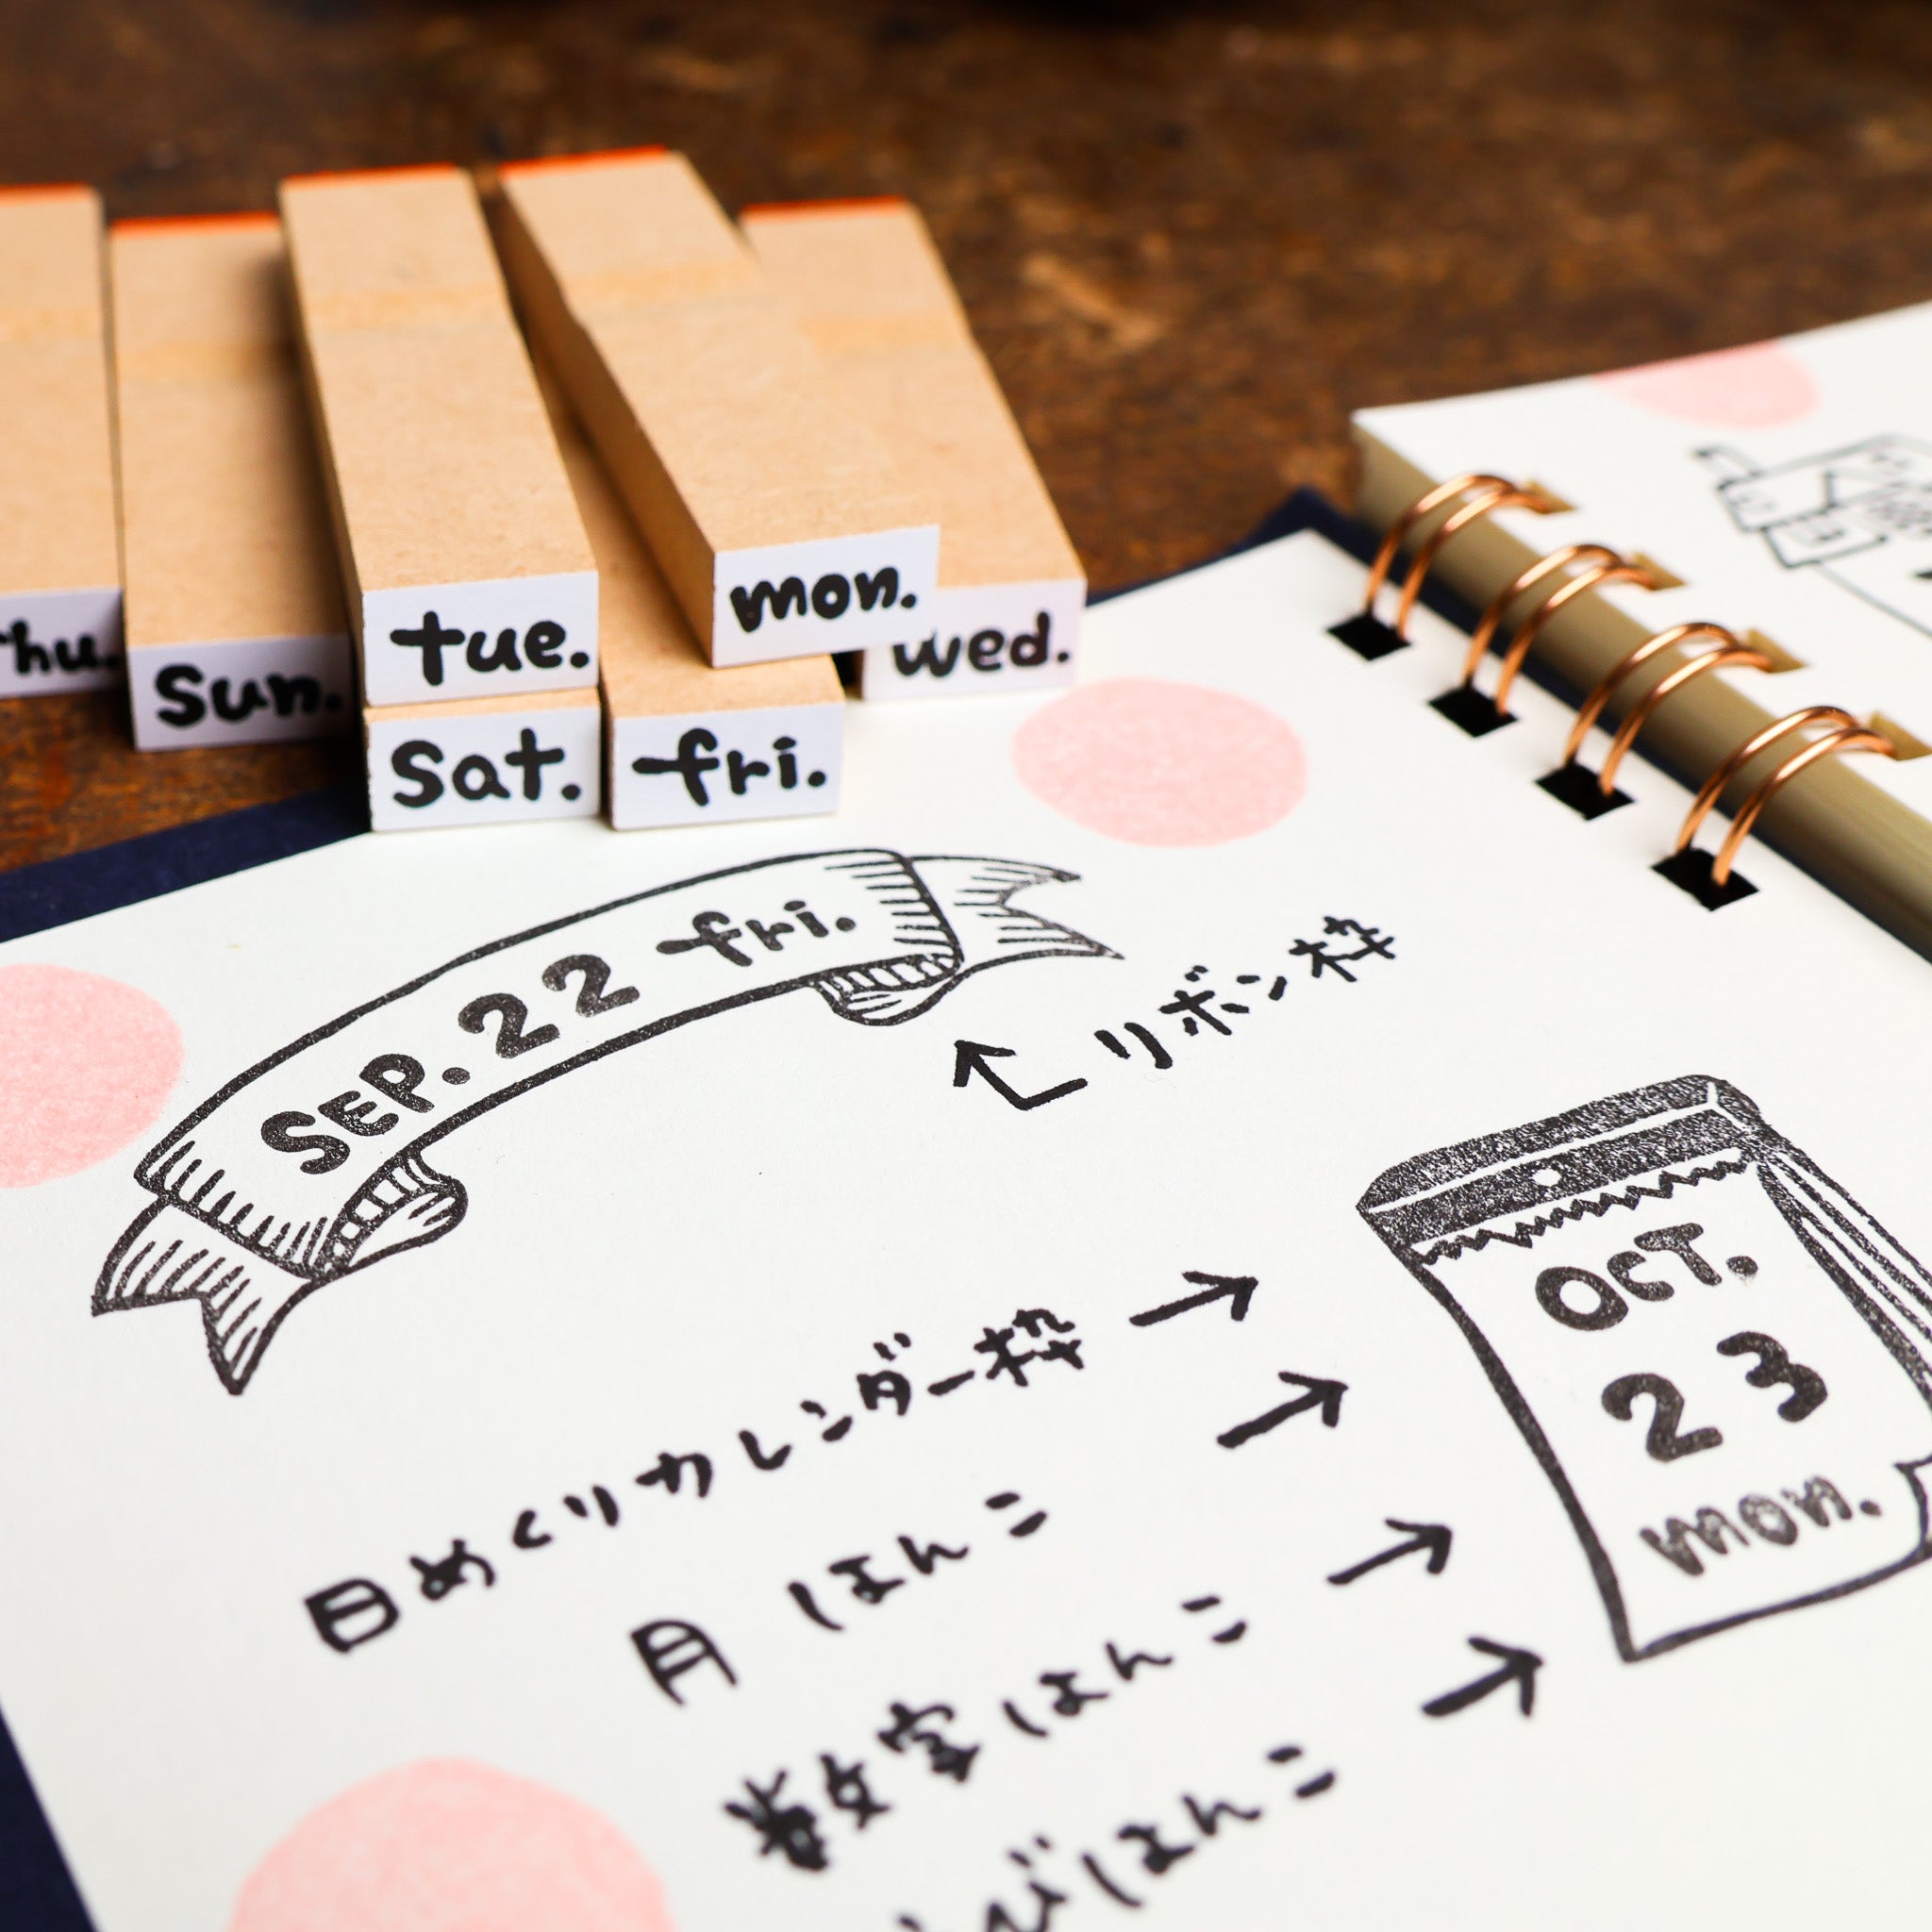 thu.
sun.
tue.
mon.
wed.
sat.
fri.
SEP. 22 fri.
リボン枠
日めくりカレンダー枠
月 はんこ
数字はんこ
びはんこ
OCT.
23
mon.